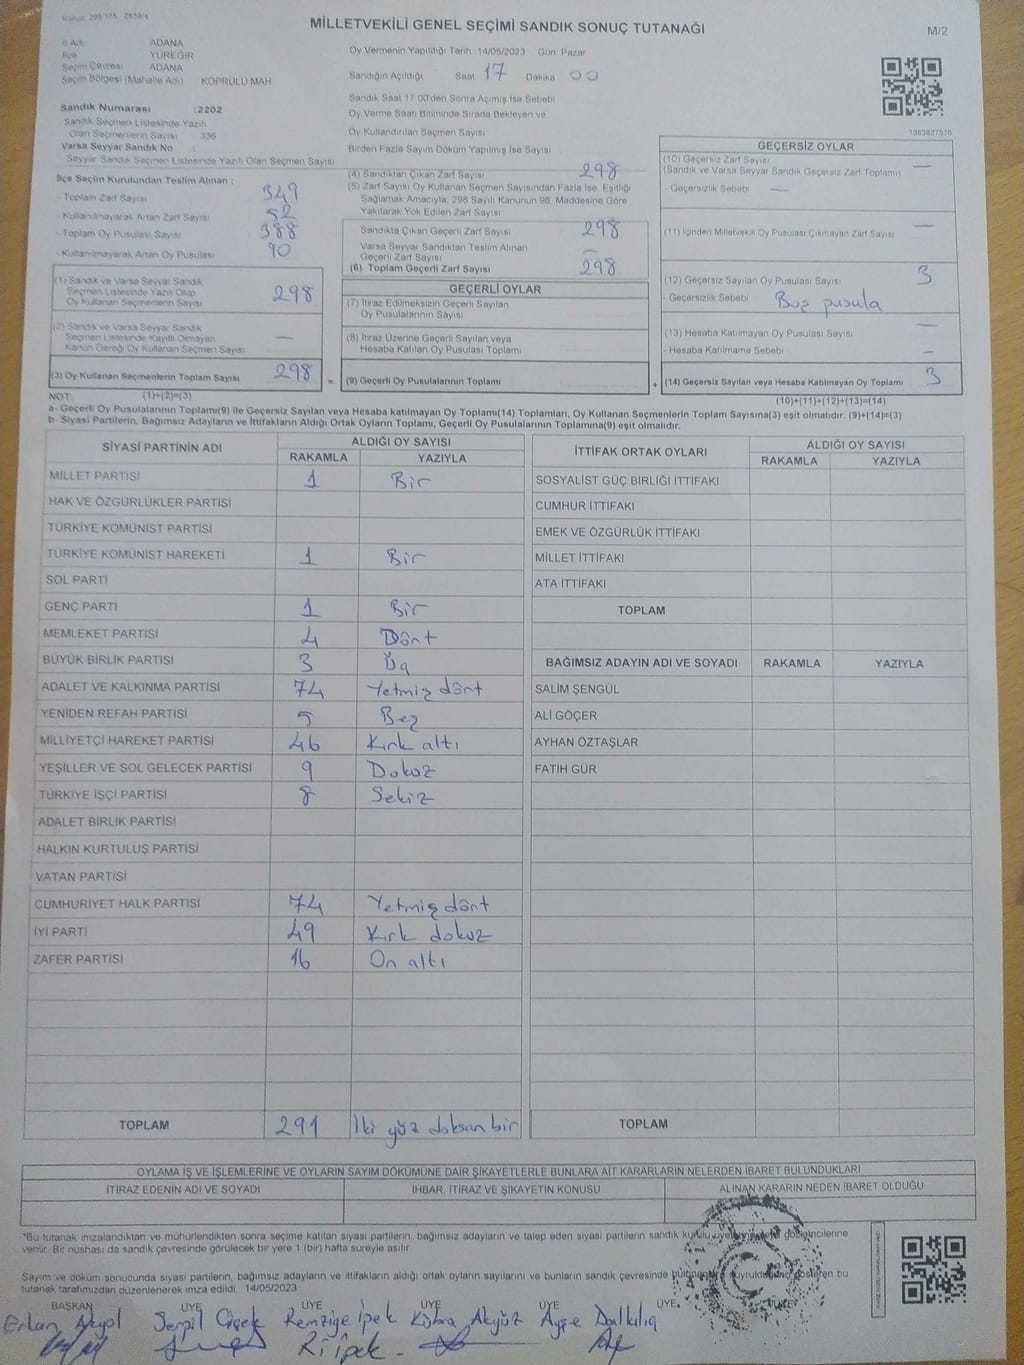 MİLLETVEKİLİ GENEL SEÇİMİ SANDIK SONUÇ TUTANAĞI
M/2
İl Adı ADANA
İlçe YÜREĞİR
Seçim Çevresi ADANA
Seçim Bölgesi (Mahalle Adı) KÖPRÜLÜ MAH
Oy Vermenin Yapıldığı Tarih: 14/05/2023 Gün: Pazar
Sandığın Açıldığı Saat 17 Dakika 00
Sandık Saat 17:00'den Sonra Açılmış İse Sebebi
Oy Verme Saati Bitiminde Sırada Bekleyen ve
Oy Kullandırılan Seçmen Sayısı
Birden Fazla Sayım Döküm Yapılmış İse Sayısı
Sandık Numarası :2202
Sandık Seçmen Listesinde Yazılı
Olan Seçmenlerin Sayısı 336
Varsa Seyyar Sandık No :
Seyyar Sandık Seçmen Listesinde Yazılı Olan Seçmen Sayısı
1083627576
İlçe Seçim Kurulundan Teslim Alınan :
- Toplam Zarf Sayısı 349
- Kullanılmayarak Artan Zarf Sayısı 52
- Toplam Oy Pusulası Sayısı 388
- Kullanılmayarak Artan Oy Pusulası 90
(1) Sandık ve Varsa Seyyar Sandık
Seçmen Listesinde Yazılı Olup
Oy Kullanan Seçmenlerin Sayısı 298
(2) Sandık ve Varsa Seyyar Sandık
Seçmen Listesinde Kayıtlı Olmayan
Kanun Gereği Oy Kullanan Seçmen Sayısı —
(3) Oy Kullanan Seçmenlerin Toplam Sayısı 298
(4) Sandıktan Çıkan Zarf Sayısı 298
(5) Zarf Sayısı Oy Kullanan Seçmen Sayısından Fazla İse, Eşitliği
Sağlamak Amacıyla, 298 Sayılı Kanunun 98. Maddesine Göre
Yakılarak Yok Edilen Zarf Sayısı
Sandıkta Çıkan Geçerli Zarf Sayısı 298
Varsa Seyyar Sandıktan Teslim Alınan
Geçerli Zarf Sayısı —
(6) Toplam Geçerli Zarf Sayısı 298
GEÇERLİ OYLAR
(7) İtiraz Edilmeksizin Geçerli Sayılan
Oy Pusulalarının Sayısı
(8) İtiraz Üzerine Geçerli Sayılan veya
Hesaba Katılan Oy Pusulası Toplamı
= (9) Geçerli Oy Pusulalarının Toplamı
GEÇERSİZ OYLAR
(10) Geçersiz Zarf Sayısı —
(Sandık ve Varsa Seyyar Sandık Geçersiz Zarf Toplamı)
- Geçersizlik Sebebi —
(11) İçinden Milletvekili Oy Pusulası Çıkmayan Zarf Sayısı —
(12) Geçersiz Sayılan Oy Pusulası Sayısı 3
- Geçersizlik Sebebi Boş pusula
(13) Hesaba Katılmayan Oy Pusulası Sayısı —
- Hesaba Katılmama Sebebi —
+ (14) Geçersiz Sayılan veya Hesaba Katılmayan Oy Toplamı 3
NOT: (1)+(2)=(3)
(10)+(11)+(12)+(13)=(14)
a- Geçerli Oy Pusulalarının Toplamı(9) ile Geçersiz Sayılan veya Hesaba katılmayan Oy Toplamı(14) Toplamları, Oy Kullanan Seçmenlerin Toplam Sayısına(3) eşit olmalıdır. (9)+(14)=(3)
b- Siyasi Partilerin, Bağımsız Adayların ve İttifakların Aldığı Ortak Oyların Toplamı, Geçerli Oy Pusulalarının Toplamına(9) eşit olmalıdır.
SİYASİ PARTİNİN ADI ALDIĞI OY SAYISI
RAKAMLA YAZIYLA
MİLLET PARTİSİ 1 Bir
HAK VE ÖZGÜRLÜKLER PARTİSİ
TÜRKİYE KOMÜNİST PARTİSİ
TÜRKİYE KOMÜNİST HAREKETİ 1 Bir
SOL PARTİ
GENÇ PARTİ 1 Bir
MEMLEKET PARTİSİ 4 Dört
BÜYÜK BİRLİK PARTİSİ 3 Üç
ADALET VE KALKINMA PARTİSİ 74 Yetmiş dört
YENİDEN REFAH PARTİSİ 5 Beş
MİLLİYETÇİ HAREKET PARTİSİ 46 Kırk altı
YEŞİLLER VE SOL GELECEK PARTİSİ 9 Dokuz
TÜRKİYE İŞÇİ PARTİSİ 8 Sekiz
ADALET BİRLİK PARTİSİ
HALKIN KURTULUŞ PARTİSİ
VATAN PARTİSİ
CUMHURİYET HALK PARTİSİ 74 Yetmiş dört
İYİ PARTİ 49 Kırk dokuz
ZAFER PARTİSİ 16 On altı
TOPLAM 291 İki yüz doksan bir
İTTİFAK ORTAK OYLARI ALDIĞI OY SAYISI
RAKAMLA YAZIYLA
SOSYALİST GÜÇ BİRLİĞİ İTTİFAKI
CUMHUR İTTİFAKI
EMEK VE ÖZGÜRLÜK İTTİFAKI
MİLLET İTTİFAKI
ATA İTTİFAKI
TOPLAM
BAĞIMSIZ ADAYIN ADI VE SOYADI RAKAMLA YAZIYLA
SALİM ŞENGÜL
ALİ GÖÇER
AYHAN ÖZTAŞLAR
FATİH GÜR
TOPLAM
OYLAMA İŞ VE İŞLEMLERİNE VE OYLARIN SAYIM DÖKÜMÜNE DAİR ŞİKAYETLERLE BUNLARA AİT KARARLARIN NELERDEN İBARET BULUNDUKLARI
İTİRAZ EDENİN ADI VE SOYADI İHBAR, İTİRAZ VE ŞİKAYETİN KONUSU ALINAN KARARIN NEDEN İBARET OLDUĞU
*Bu tutanak imzalandıktan ve mühürlendikten sonra seçime katılan siyasi partilerin, bağımsız adayların ve talep eden siyasi partilerin sandık kurulu gözlemcilerine
verilir. Bir nüshası da sandık çevresinde görülecek bir yere 1 (bir) hafta süreyle asılır
Sayım ve döküm sonucunda siyasi partilerin, bağımsız adayların ve ittifakların aldığı ortak oyların sayılarını ve bunların sandık çevresinde gösteren bu
tutanak tarafımızdan düzenlenerek imza edildi. 14/05/2023
BAŞKAN ÜYE ÜYE ÜYE ÜYE ÜYE
Erkan Akyol Serpil Çiçek Remziye İpek Kübra Akyüz Ayşe Dalkılıç
R. İpek